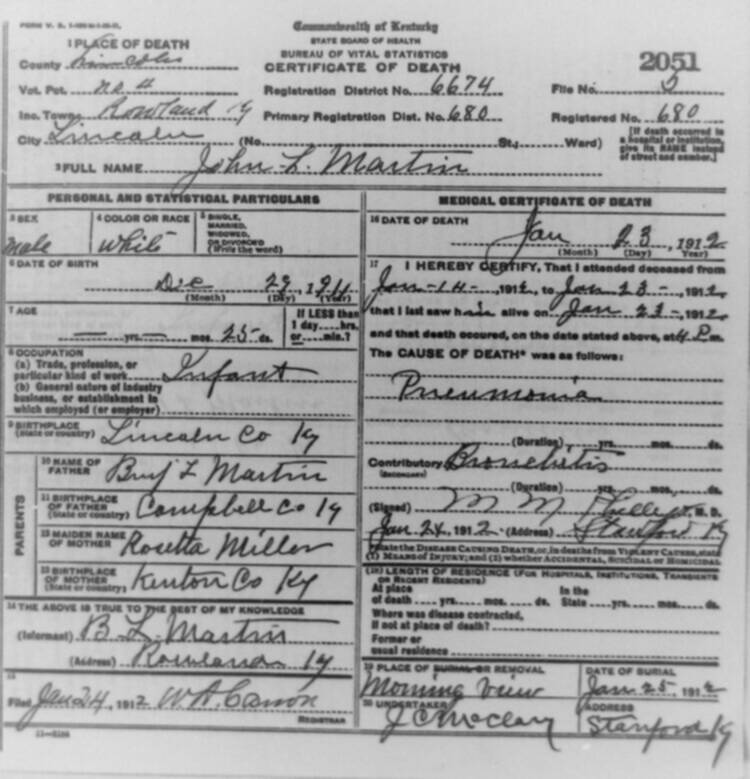 Commonwealth of Kentucky
STATE BOARD OF HEALTH
BUREAU OF VITAL STATISTICS
CERTIFICATE OF DEATH
1 PLACE OF DEATH
County Lincoln
Vot. Pct. no. 4
Inc. Town Rowland Ky
City Lincoln (No. St.; Ward)
Registration District No. 6674
Primary Registration Dist. No. 680
2051
File No. 5
Registered No. 680
[If death occurred in a hospital or institution, give its NAME instead of street and number.]
2 FULL NAME John L. Martin
PERSONAL AND STATISTICAL PARTICULARS
3 SEX
male
4 COLOR OR RACE
White
5 SINGLE, MARRIED, WIDOWED, OR DIVORCED (Write the word)
6 DATE OF BIRTH
Dec 29, 1911
(Month) (Day) (Year)
7 AGE
— yrs. — mos. 25 ds.
If LESS than 1 day....hrs. or....min.?
8 OCCUPATION
(a) Trade, profession, or particular kind of work Infant
(b) General nature of industry business, or establishment in which employed (or employer)
9 BIRTHPLACE
(State or country) Lincoln Co Ky
PARENTS
10 NAME OF FATHER Benj L Martin
11 BIRTHPLACE OF FATHER
(State or country) Campbell Co Ky
12 MAIDEN NAME OF MOTHER Rosetta Miller
13 BIRTHPLACE OF MOTHER
(State or country) Kenton Co Ky
14 THE ABOVE IS TRUE TO THE BEST OF MY KNOWLEDGE
(Informant) B L. Martin
(Address) Rowland Ky
15
Filed Jan 24, 1912 W A. Carson
REGISTRAR
MEDICAL CERTIFICATE OF DEATH
16 DATE OF DEATH
Jan 23, 1912
(Month) (Day) (Year)
17 I HEREBY CERTIFY, That I attended deceased from
Jan - 14 -, 1912, to Jan 23 -, 1912,
that I last saw him alive on Jan 23 -, 1912
and that death occured, on the date stated above, at 4 P m.
The CAUSE OF DEATH* was as follows:
Pneumonia
(Duration) yrs. mos. ds.
Contributory Bronchitis
(SECONDARY)
(Duration) yrs. mos. ds.
(Signed) M M Phillips, M. D.
Jan 24, 1912 (Address) Stanford Ky
*State the DISEASE CAUSING DEATH, or, in deaths from VIOLENT CAUSES, state (1) MEANS OF INJURY; and (2) whether ACCIDENTAL, SUICIDAL or HOMICIDAL
18 LENGTH OF RESIDENCE (FOR HOSPITALS, INSTITUTIONS, TRANSIENTS OR RECENT RESIDENTS)
At place of death yrs. mos. ds. In the State yrs. mos. ds.
Where was disease contracted, if not at place of death?
Former or usual residence
19 PLACE OF BURIAL OR REMOVAL
Morning View
DATE OF BURIAL
Jan 25, 1912
20 UNDERTAKER
J C McClary
ADDRESS
Stanford Ky